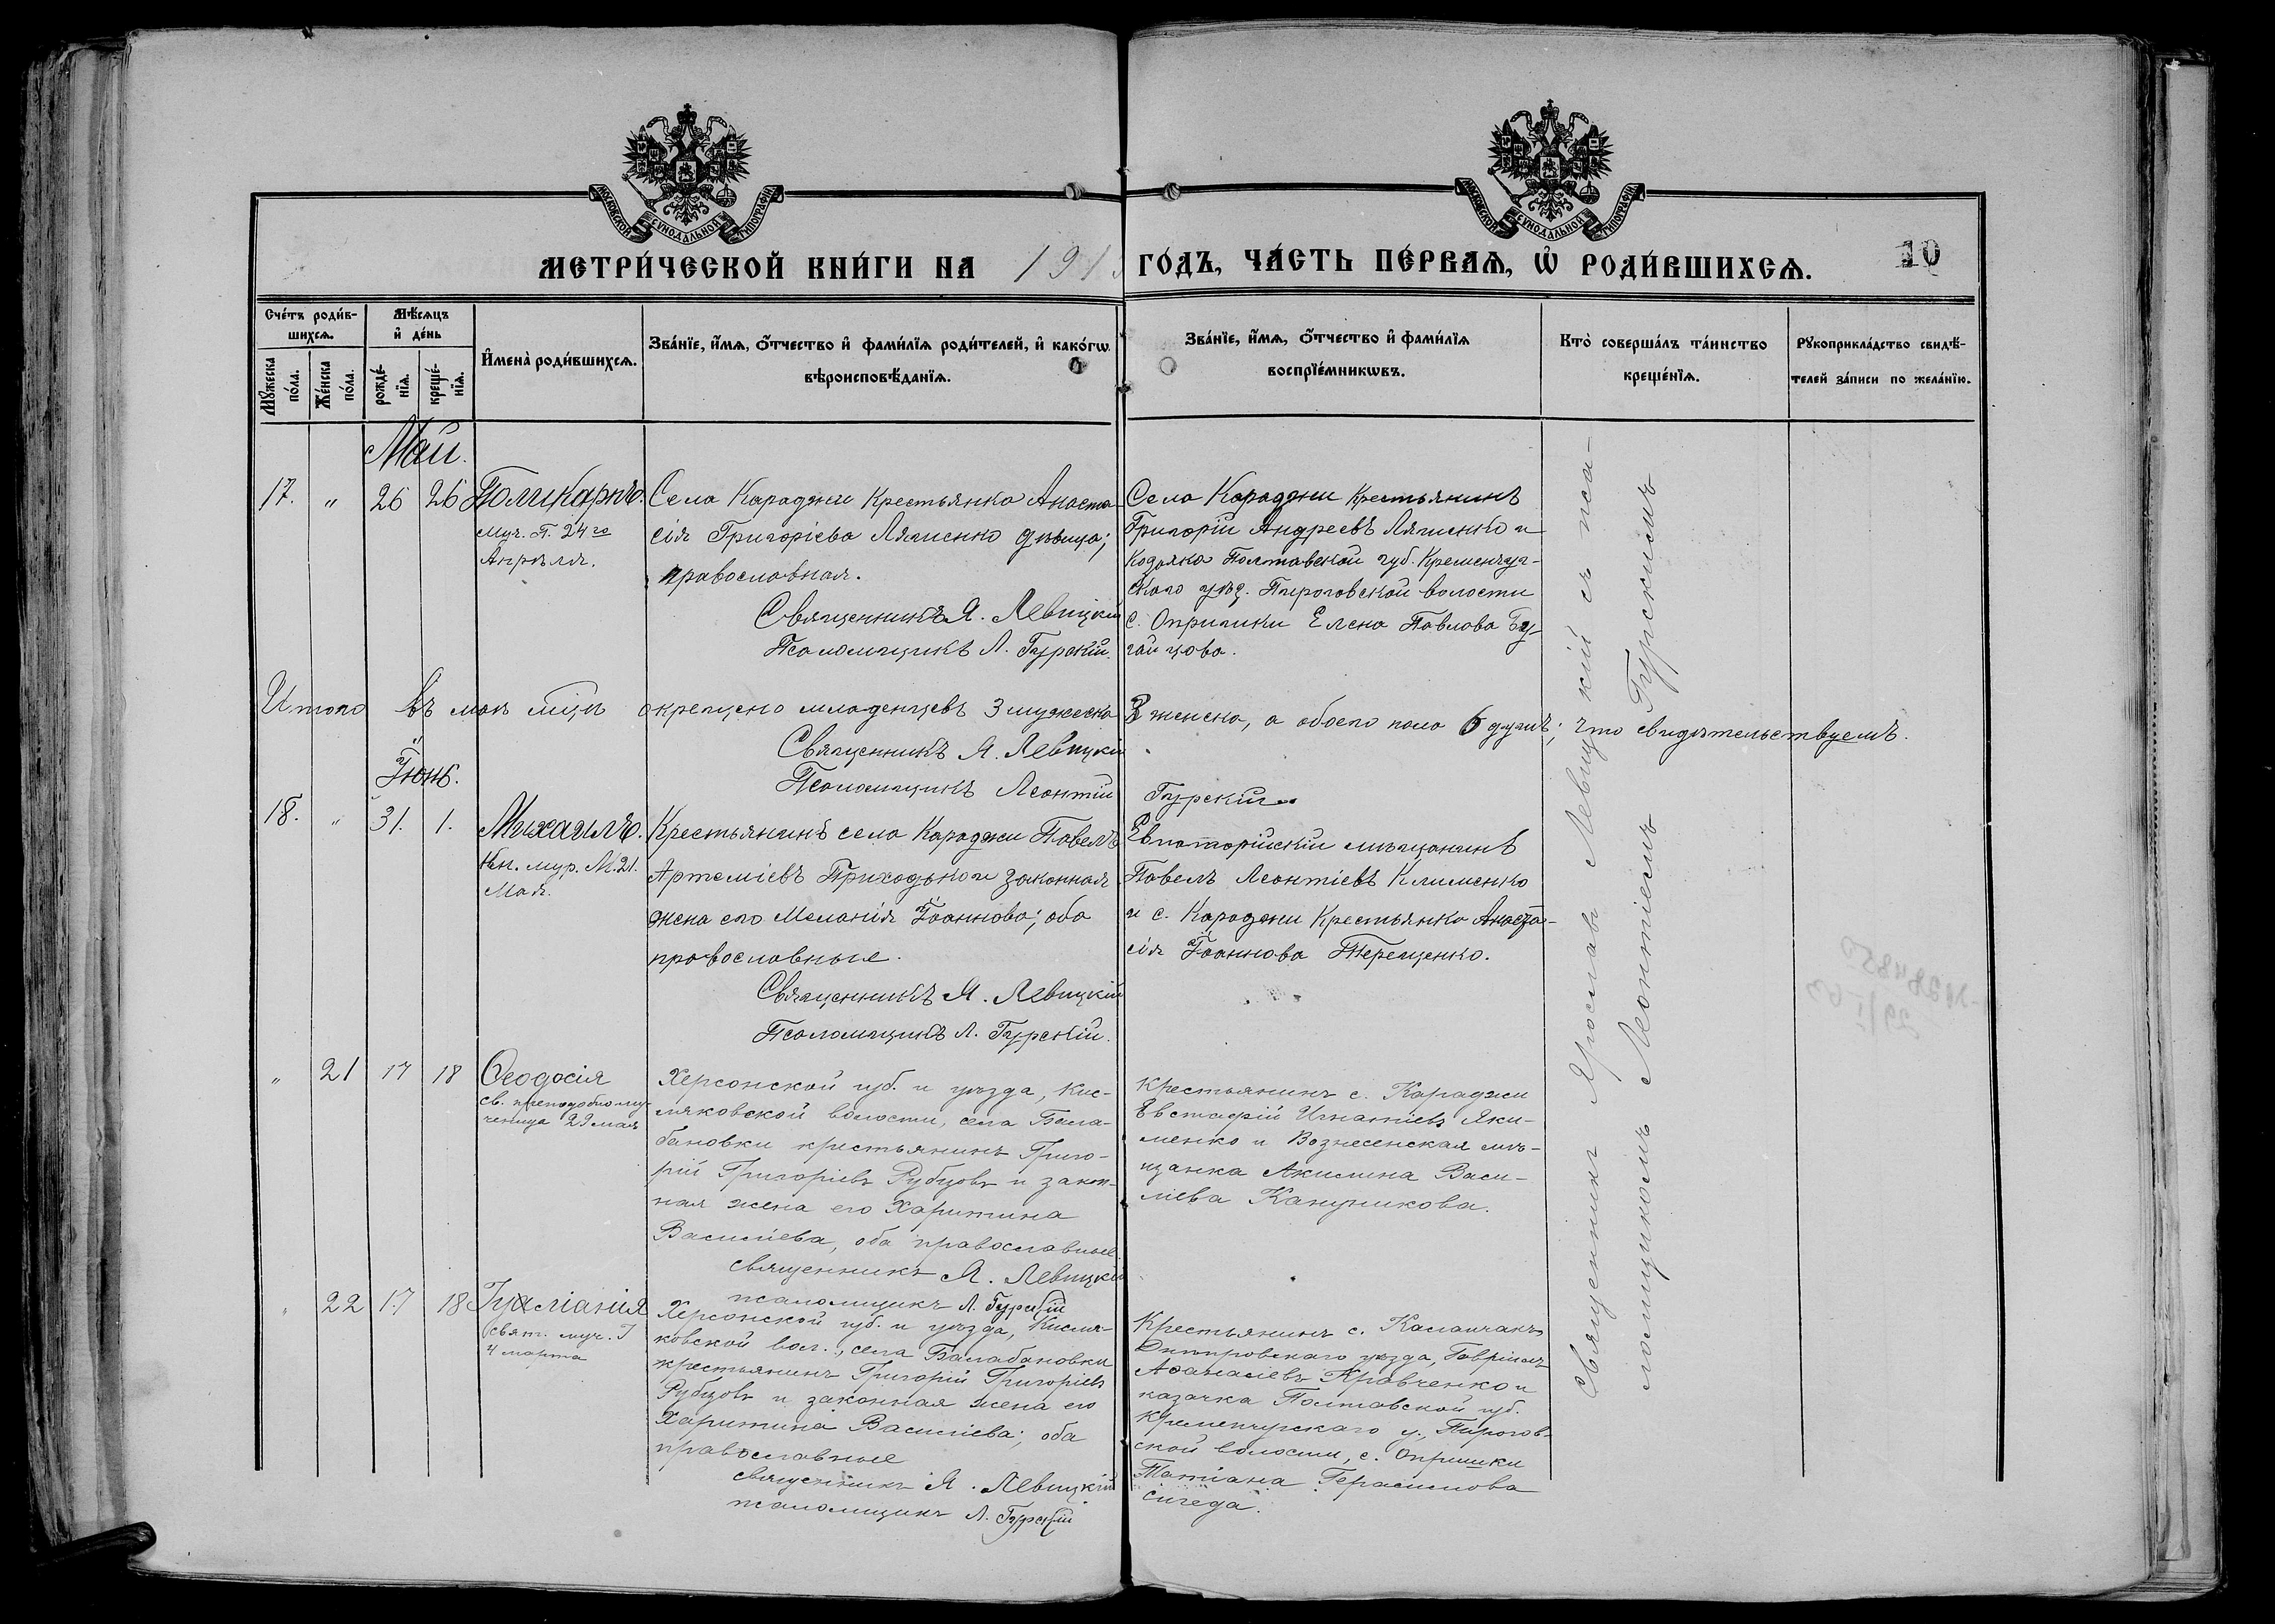 МОСКОВСКОЙ СУНОДАЛЬНОЙ ТИПОГРАФІИ
МОСКОВСКОЙ СУНОДАЛЬНОЙ ТИПОГРАФІИ
МЕТРИ́ЧЕСКОЙ КНИ́ГИ НА 191
ГО́ДЪ, ЧА́СТЬ ПЕ́РВАѦ, Ѡ҆ РОДИ́ВШИХСѦ.
10
Сче́тъ роди́в-
шихсѧ.
Мꙋ́жеска по́ла.
Же́нска по́ла.
Мѣ́сѧцъ
и҆ де́нь
рожде́-нїѧ.
креще́-нїѧ.
И҆мена̀ роди́вшихсѧ.
Зва́нїе, и҆́мѧ, ѻ҆́тчество и҆ фамі́лїѧ роди́телей, и҆ како́гѡ
вѣроисповѣ́данїѧ.
Зва́нїе, и҆́мѧ, ѻ҆́тчество и҆ фамі́лїѧ
воспрїе́мникѡвъ.
Кто̀ соверша́лъ та́инство
креще́нїѧ.
Рꙋкоприкла́дство свидѣ́-
телей за́писи по жела́нїю.
Май.
17. " 26 26 Поликарпъ.
Муч. П. 24го
Апрѣля.
Села Караджи крестьянка Анаста-
сія Григорієва Ляшенко дѣвица;
православная.
Священникъ Я. Левицкій
Псаломщикъ Л. Гурскій.
Села Караджи крестьянинъ
Григорій Андреевъ Ляшенко и
козачка Полтавской губ. Кременчуг-
скаго уѣзд. Пироговской волости
с. Опришки Елена Павлова Бу-
гайцова.
Итого въ маѣ мцѣ окрещено младенцевъ 3 мужеска 3 женска, а обоего пола 6 душъ; что свидѣтельствуемъ.
Священникъ Я. Левицкій
Псаломщикъ Леонтій Гурскій
Іюнь.
18. " 31. 1. Михаилъ.
Кн. мур. М. 21.
Мая.
Крестьянинъ села Караджи Павелъ
Артеміевъ Приходько и законная
жена его Меланія Іоаннова; оба
православные.
Священникъ Я. Левицкій
Псаломщикъ Л. Гурскій.
Евпаторійскій мѣщанинъ
Павелъ Леонтіевъ Клименко
и с. Караджи крестьянка Анаста-
сія Іоаннова Терещенко.
" 21 17 18 Ѳеодосія
св. преподобному-
ченица 29 мая
Херсонской губ. и уѣзда, Кис-
ляковской волости, села Бала-
бановки крестьянинъ Григо-
рій Григоріевъ Рубцовъ и закон-
ная жена его Харитина
Василіева, оба православные.
священникъ Я. Левицкій
псаломщикъ Л. Гурскій
Крестьянинъ с. Караджи
Евстафій Игнатіевъ Яки-
менко и Вознесенская мѣ-
щанка Акилина Васи-
ліева Канунникова.
" 22 17 18 Іуліанія
свят. муч. І
4 марта
Херсонской губ. и уѣзда, Кисля-
ковской вол., села Балабановки
крестьянинъ Григорій Григоріевъ
Рубцовъ и законная жена его
Харитина Василіева; оба
православные
священникъ Я. Левицкій
псаломщикъ Л. Гурскій
Крестьянинъ с. Каланчакъ
Днѣпровскаго уѣзда, Гавріилъ
Аѳанасіевъ Кравченко и
казачка Полтавской губ.
Кременчугскаго у., Пирогов-
ской волости, с. Опришки
Татіана Герасимова
Священникъ Ярославъ Левицкій съ пса-
ломщикомъ Леонтіемъ Гурскимъ